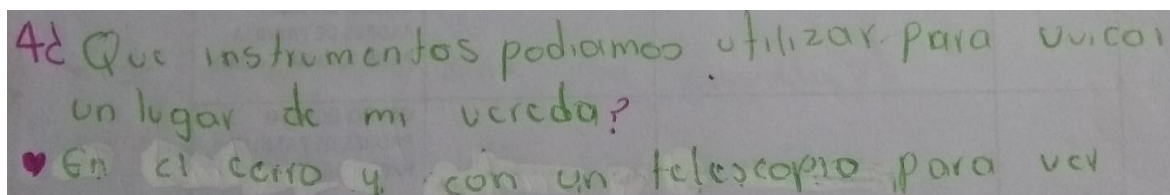 4¿ Que instrumentos podiamos utilizar para uvicar
un lugar de mi vereda?
En el cerro y con un telescopio para ver